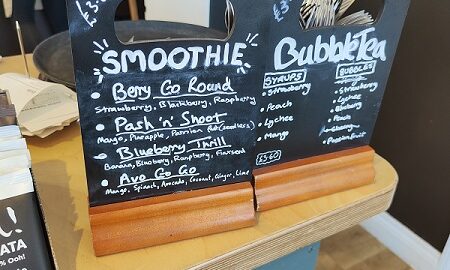 £3
SMOOTHIE
Berry Go Round
Strawberry, Blackberry, Raspberry
Pash 'n' Shoot
Mango, Pineapple, Passion Fruit (seedless)
Blueberry Thrill
Banana, Blueberry, Raspberry, Flaxseed
Avo Go Go
Mango, Spinach, Avocado, Coconut, Ginger, Lime
BubbleTea
SYRUPS
Strawberry
Peach
Lychee
Mango
£5.60
BUBBLES
Strawberry
Lychee
Blueberry
Peach
Cherry
Passion Fruit
ATA
% Ooh!